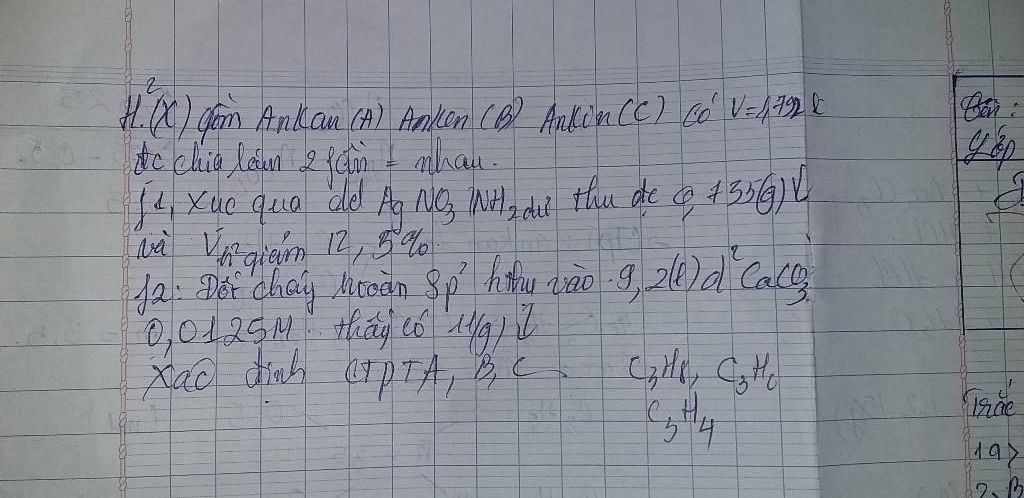 H.²(X) gồm Ankan (A) Anken (B) Ankin (C) có V=1,792 l
đc chia làm 2 fần = nhau.
f1, Xục qua dd AgNO3/NH3 dư thu đc 0,735(g)↓
và Vh² giảm 12,5%.
f2: Đốt cháy hoàn sp' hthu vào 9,2(l) d² CaCO3
0,0125M thấy có 11(g)↓
Xác định CTPT A, B, C
C3H8, C3H6
C3H4
Bên :
Trắc
1a>
2. B